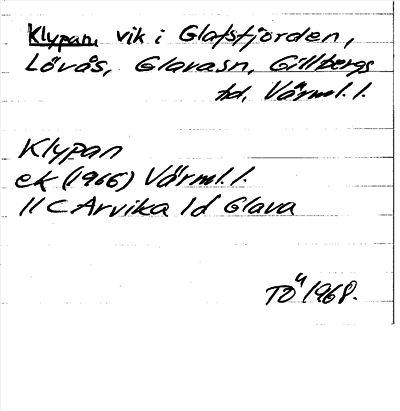 Klypan, vik i Glafsfjorden,
Lövås, Glava sn, Gillbergs
hd, Värml. l.
Klypan
ek (1966) Värml. l.
11 C Arvika 1d Glava
TÖ 4/1968.